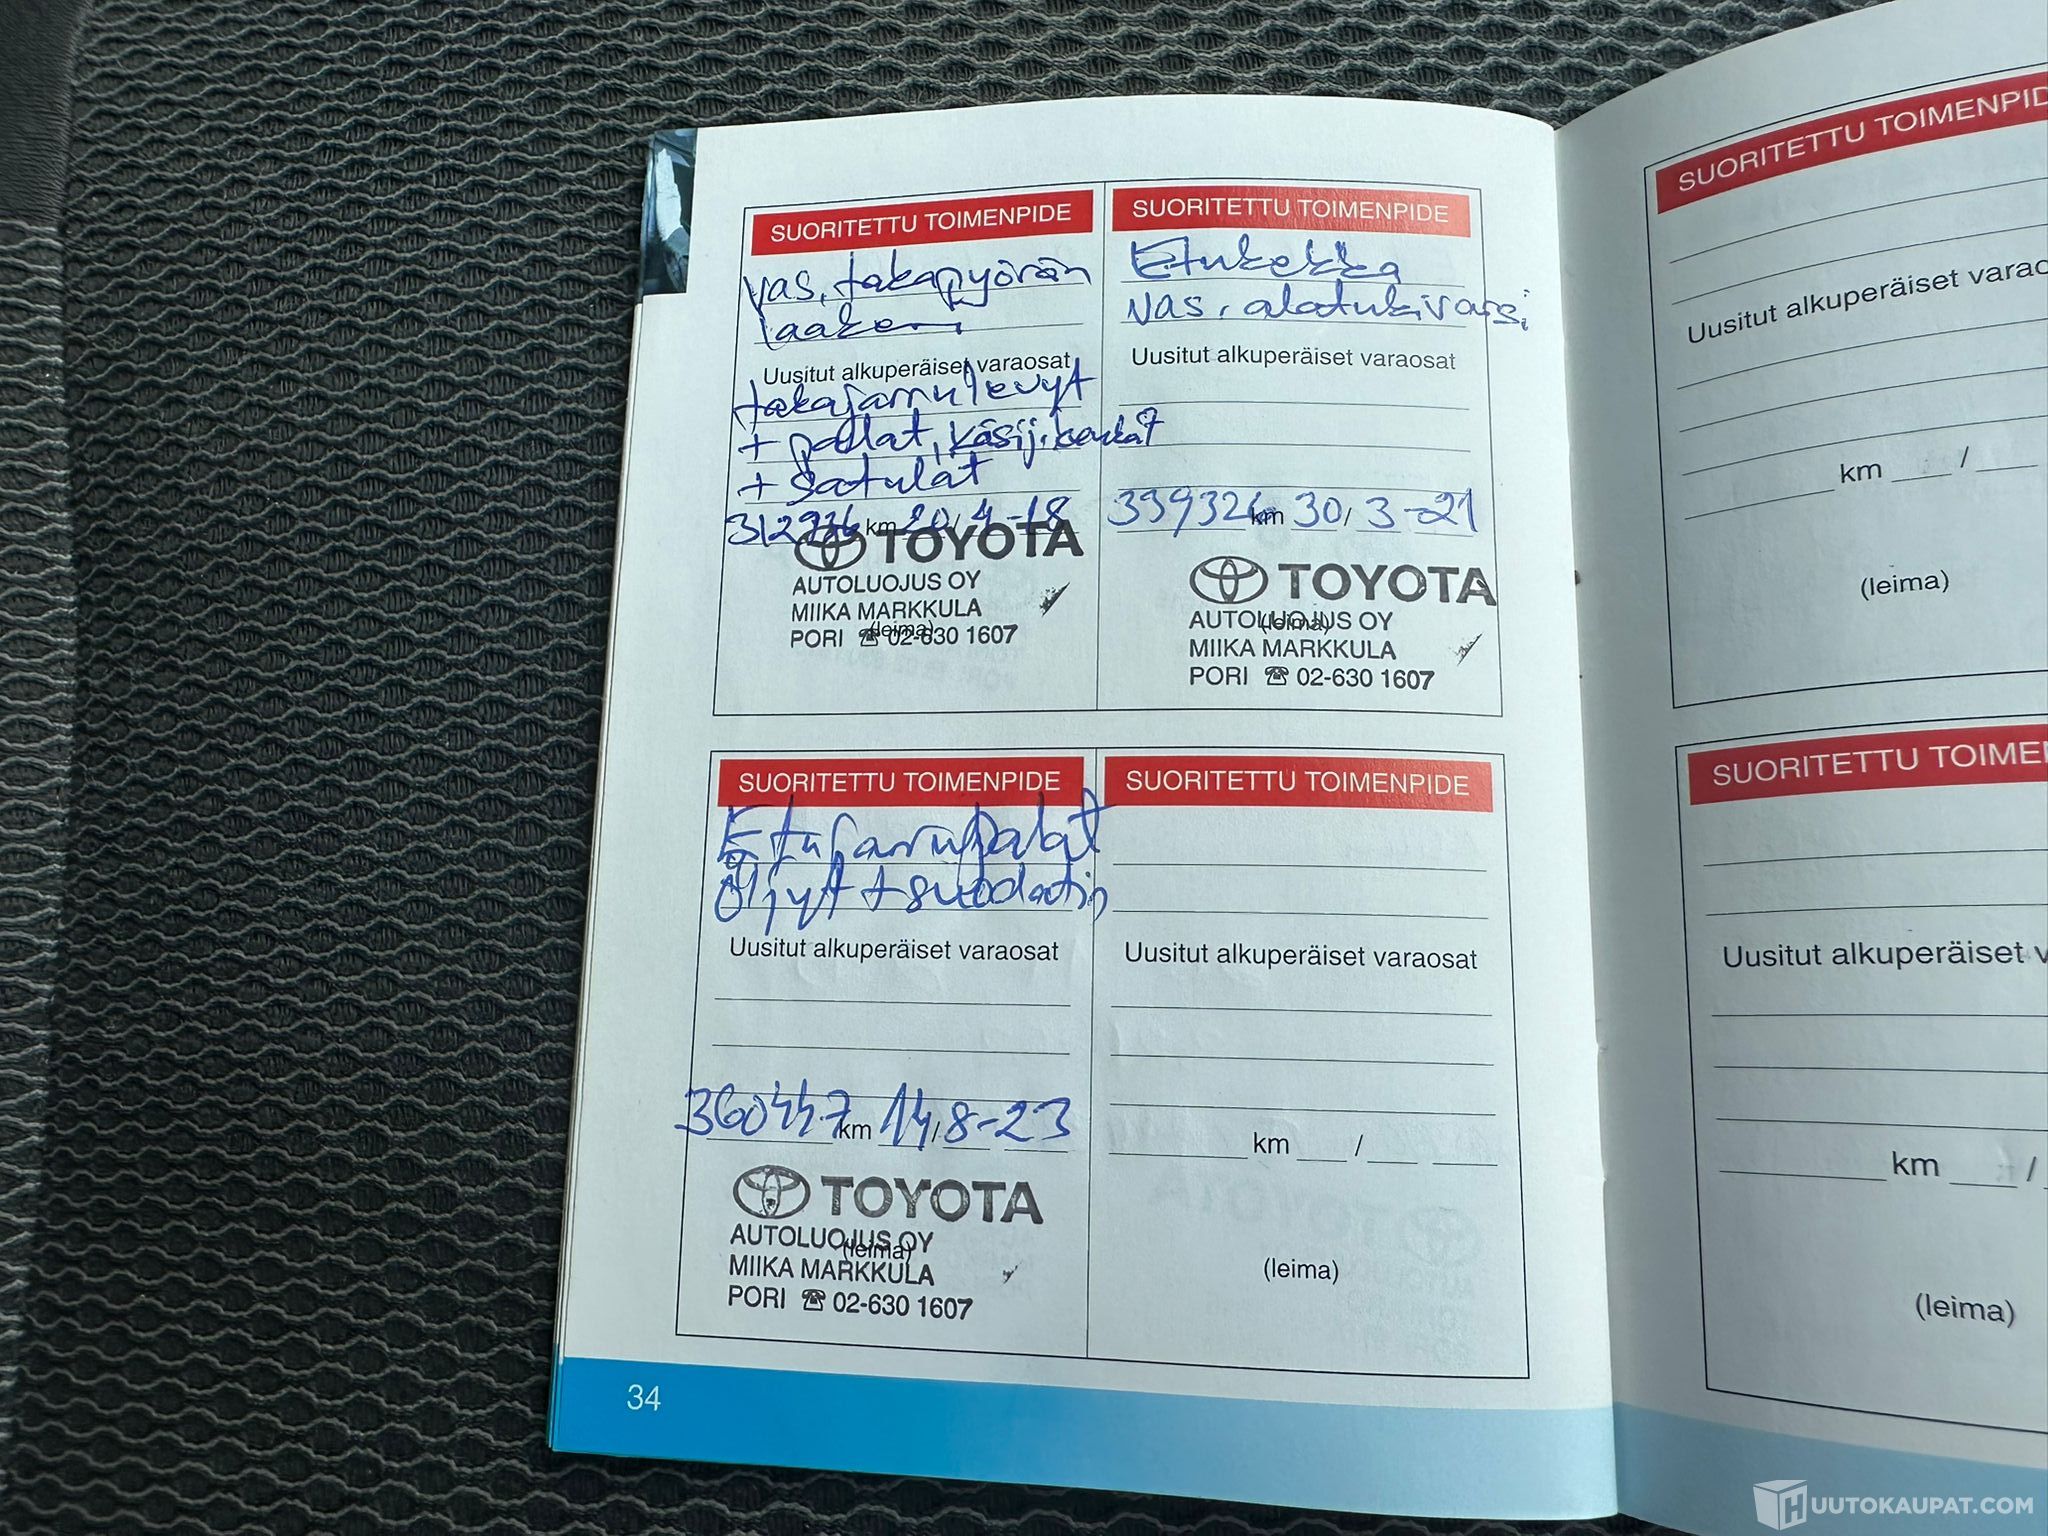 SUORITETTU TOIMENPIDE
vas. takapyörän
laakeri
Uusitut alkuperäiset varaosat
takajarrulevyt
+ palat, käsij. kengät
+ satulat
312936 km 20/4-18
TOYOTA
AUTOLUOJUS OY
MIIKA MARKKULA
(leima)
PORI ☎ 02-630 1607
SUORITETTU TOIMENPIDE
Etukekka
vas. alatukivarsi
Uusitut alkuperäiset varaosat
339326 km 30/3-21
TOYOTA
AUTOLUOJUS OY
(leima)
MIIKA MARKKULA
PORI ☎ 02-630 1607
SUORITETTU TOIMENPIDE
Etujarrupalat
Öljyt + suodatin
Uusitut alkuperäiset varaosat
360447 km 14/8-23
TOYOTA
AUTOLUOJUS OY
(leima)
MIIKA MARKKULA
PORI ☎ 02-630 1607
SUORITETTU TOIMENPIDE
Uusitut alkuperäiset varaosat
km /
(leima)
34
SUORITETTU TOIMENPID
Uusitut alkuperäiset varao
km /
(leima)
SUORITETTU TOIME
Uusitut alkuperäiset v
km /
(leima)
HUUTOKAUPAT.COM